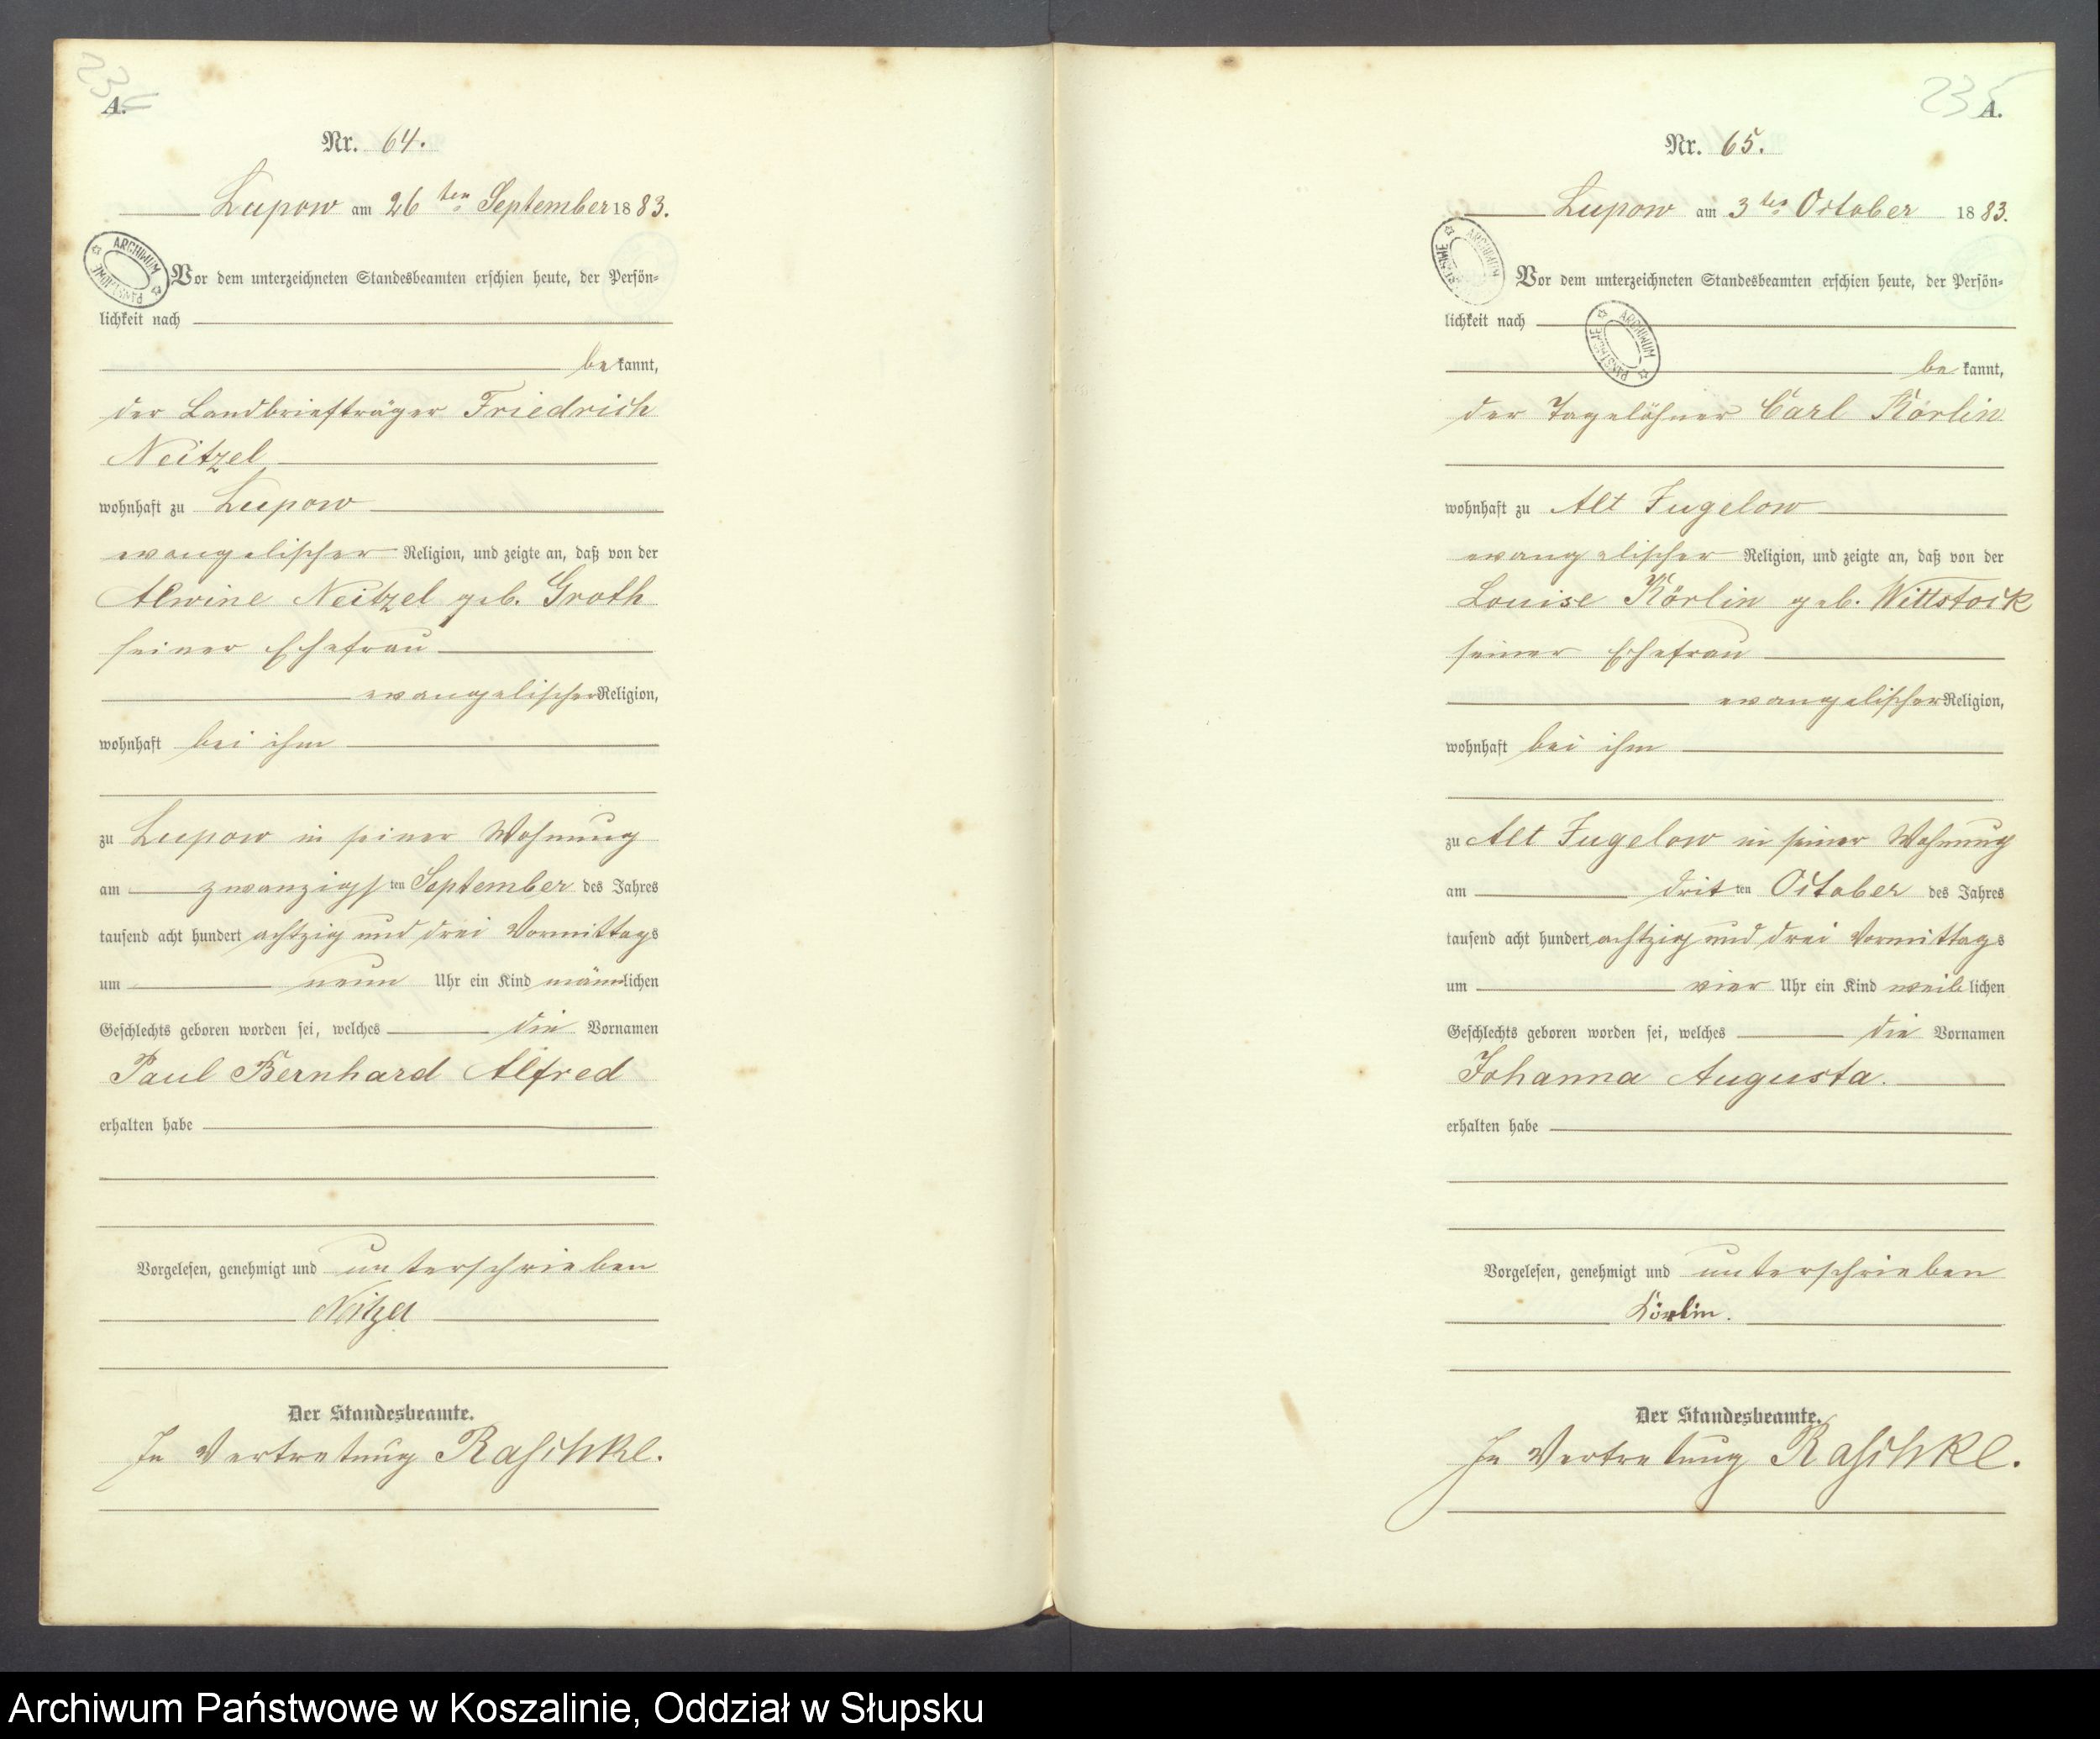 234
A.
Nr. 64.
Lupow am 26 ten September 1883.
ARCHIWUM PAŃSTWOWE
Vor dem unterzeichneten Standesbeamten erschien heute, der Persön=
lichkeit nach
bekannt,
der Landbriefträger Friedrich
Neitzel
wohnhaft zu Lupow
evangelischer Religion, und zeigte an, daß von der
Alwine Neitzel geb. Groth
seiner Ehefrau
evangelischer Religion,
wohnhaft bei ihm
zu Lupow in seiner Wohnung
am zwanzigsten September des Jahres
tausend acht hundert achtzig und drei Vormittags
um neun Uhr ein Kind männlichen
Geschlechts geboren worden sei, welches die Vornamen
Paul Bernhard Alfred
erhalten habe
Vorgelesen, genehmigt und unterschrieben
Neitzel
Der Standesbeamte.
In Vertretung Raschke.
235
A.
Nr. 65.
Lupow am 3 ten October 1883.
ARCHIWUM PAŃSTWOWE
Vor dem unterzeichneten Standesbeamten erschien heute, der Persön=
lichkeit nach
ARCHIWUM PAŃSTWOWE
bekannt,
der Tagelöhner Carl Körlin
wohnhaft zu Alt Jugelow
evangelischer Religion, und zeigte an, daß von der
Louise Körlin geb. Wittstock
seiner Ehefrau
evangelischer Religion,
wohnhaft bei ihm
zu Alt Jugelow in seiner Wohnung
am dritten October des Jahres
tausend acht hundert achtzig und drei Vormittags
um vier Uhr ein Kind weiblichen
Geschlechts geboren worden sei, welches die Vornamen
Johanna Augusta.
erhalten habe
Vorgelesen, genehmigt und unterschrieben
Körlin.
Der Standesbeamte.
In Vertretung Raschke.
Archiwum Państwowe w Koszalinie, Oddział w Słupsku